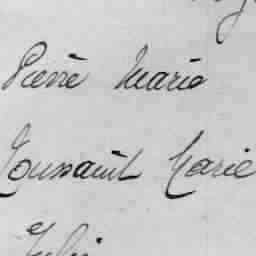 Pierre Marie
Toussaint Marie